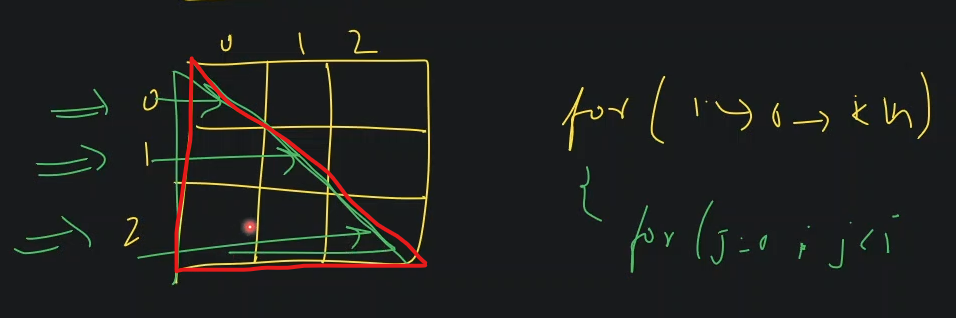 0 1 2
0
1
2
for ( i → 0 → i < n )
{
for ( j = 0 ; j < i